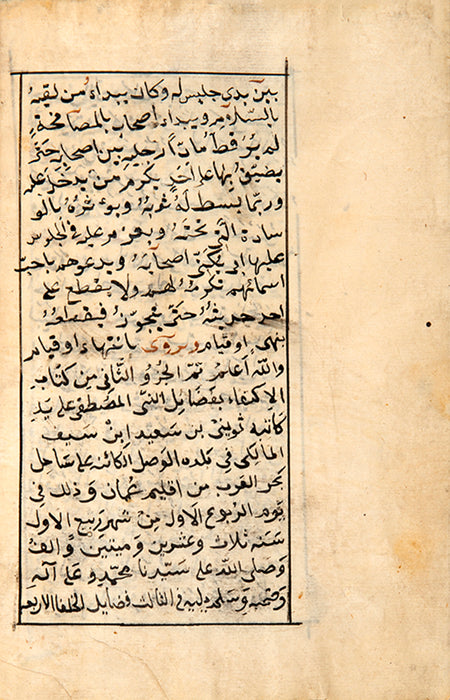 بين يدي جليس له وكان يبداء من لقيه
بالسلام ويبداء اصحابه بالمصافحة
لم ير قط مادا رجليه بين اصحابه حتى
يضيق بها على احد يكرم من يدخل عليه
وربما بسط له ثوبه ويوثره بالو
سادة التي تحته ويعزم عليه في الجلوس
عليها ان ابى يكني اصحابه ويدعوهم باحب
اسمائهم تكرمة لهم ولا يقطع على
احد حديثه حتى يتجوز فيقطعه
بنهي او قيام ويروى بانتهاء او قيام
والله اعلم تم الجزؤ الثاني من كتاب
الاكتفاء بفضايل النبي المصطفى على يد
كاتبه ثويني بن سعيد ابن سيف
المالكي في بلده الوصل الكائنه على ساحل
بحر العرب من اقليم عمان وذلك في
يوم الربوع الاول من شهر ربيع الاول
سنه ثلاث وعشرين وميتين والف
وصلى الله على سيدنا محمد وعلى آله
وصحبه وسلم ويليه في الثالث فضايل الخلفا الاربعه